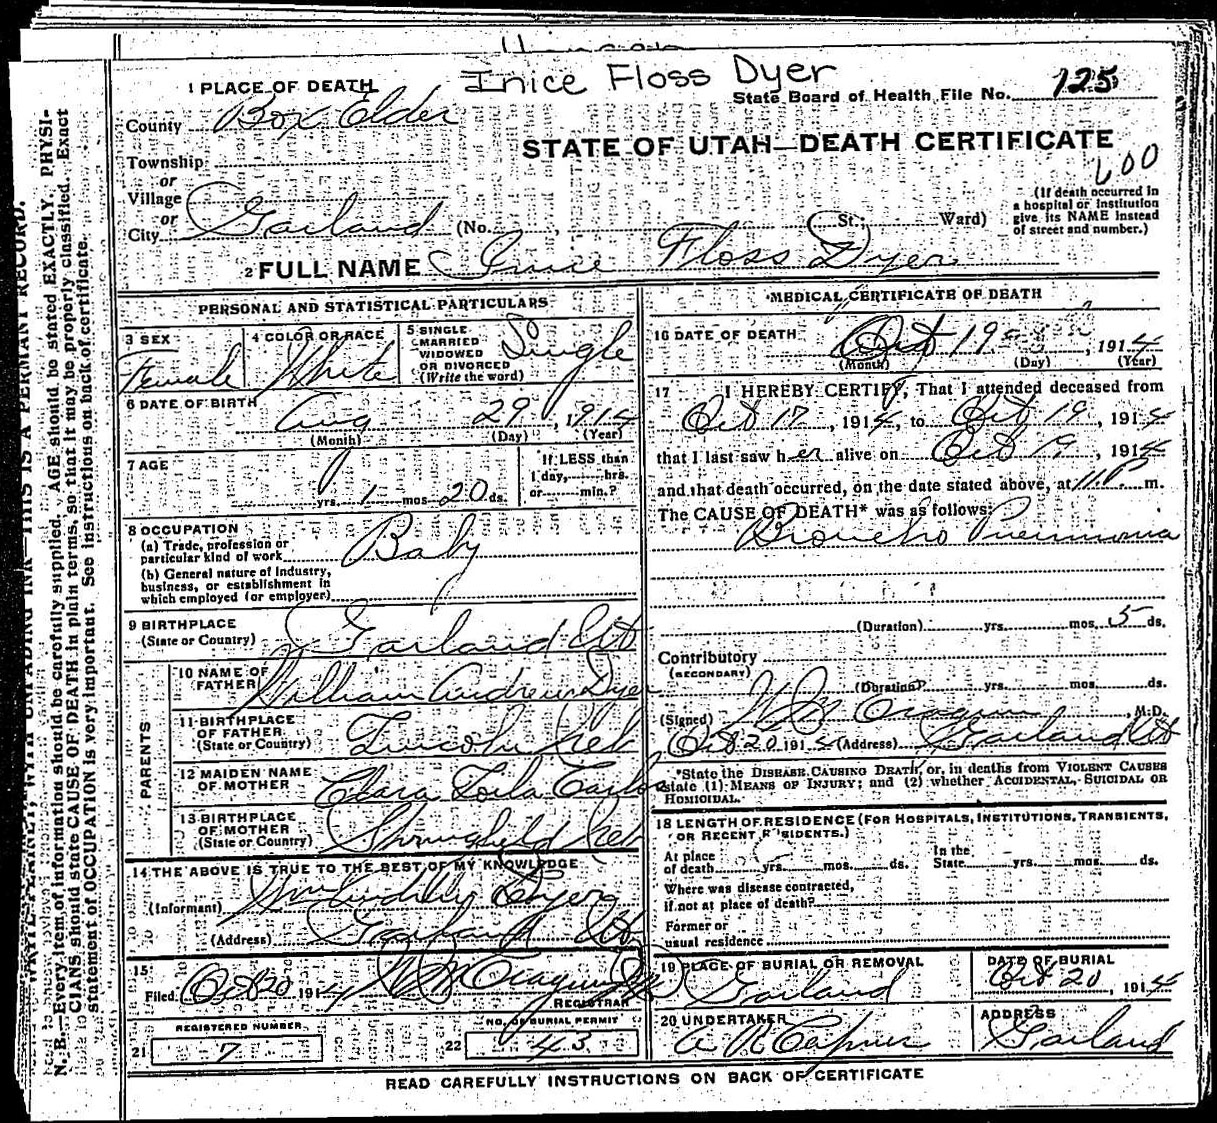 Inice Floss Dyer
1 PLACE OF DEATH
State Board of Health File No. 125
County Box Elder
STATE OF UTAH—DEATH CERTIFICATE
Township
or
Village
or
City Garland (No. , St.; Ward)
600
(If death occurred in
a hospital or institution
give its NAME instead
of street and number.)
2 FULL NAME Inice Floss Dyer
PERSONAL AND STATISTICAL PARTICULARS
3 SEX
Female
4 COLOR OR RACE
White
5 SINGLE
MARRIED
WIDOWED
OR DIVORCED
(Write the word)
Single
6 DATE OF BIRTH
Aug 29, 1914
(Month) (Day) (Year)
7 AGE
yrs. 1 mos. 20 ds.
If LESS than
1 day, hrs.
or min.?
8 OCCUPATION
(a) Trade, profession or
particular kind of work Baby
(b) General nature of Industry,
business, or establishment in
which employed (or employer)
9 BIRTHPLACE
(State or Country) Garland Ut
PARENTS
10 NAME OF
FATHER William Andrew Dyer
11 BIRTHPLACE
OF FATHER
(State or Country) Lincoln Neb
12 MAIDEN NAME
OF MOTHER Clara Zoila
13 BIRTHPLACE
OF MOTHER
(State or Country) Neb
14 THE ABOVE IS TRUE TO THE BEST OF MY KNOWLEDGE
(Informant) Dyer
(Address) Garland Ut
15
Filed Oct 20 1914 W M Oragun
REGISTRAR
REGISTERED NUMBER
21 7
NO. OF BURIAL PERMIT
22 43
MEDICAL CERTIFICATE OF DEATH
16 DATE OF DEATH Oct 19, 1914
(Month) (Day) (Year)
17 I HEREBY CERTIFY, That I attended deceased from
Oct 17, 1914, to Oct 19, 1914
that I last saw her alive on Oct 19, 1914
and that death occurred, on the date stated above, at 11 P m.
The CAUSE OF DEATH* was as follows:
Broncho Pneumonia
(Duration) yrs. mos. 5 ds.
Contributory
(SECONDARY)
(Duration) yrs. mos. ds.
(Signed) W M Oragun, M.D.
Oct 20 1914 (Address) Garland Ut
*State the DISEASE CAUSING DEATH, or, in deaths from VIOLENT CAUSES
state (1) MEANS OF INJURY; and (2) whether ACCIDENTAL, SUICIDAL OR
HOMICIDAL.
18 LENGTH OF RESIDENCE (FOR HOSPITALS, INSTITUTIONS, TRANSIENTS,
OR RECENT RESIDENTS.)
At place
of death yrs. mos. ds.
In the
State yrs. mos. ds.
Where was disease contracted,
if not at place of death?
Former or
usual residence
19 PLACE OF BURIAL OR REMOVAL
Garland
DATE OF BURIAL
Oct 20, 1914
20 UNDERTAKER
A R Capner
ADDRESS
Garland
READ CAREFULLY INSTRUCTIONS ON BACK OF CERTIFICATE
THIS IS A PERMANT RECORD.
N. B.—Every item of information should be carefully supplied. AGE should be stated EXACTLY. PHYSI-
CIANS should state CAUSE OF DEATH in plain terms, so that it may be properly classified. Exact
statement of OCCUPATION is very important. See instructions on back of certificate.